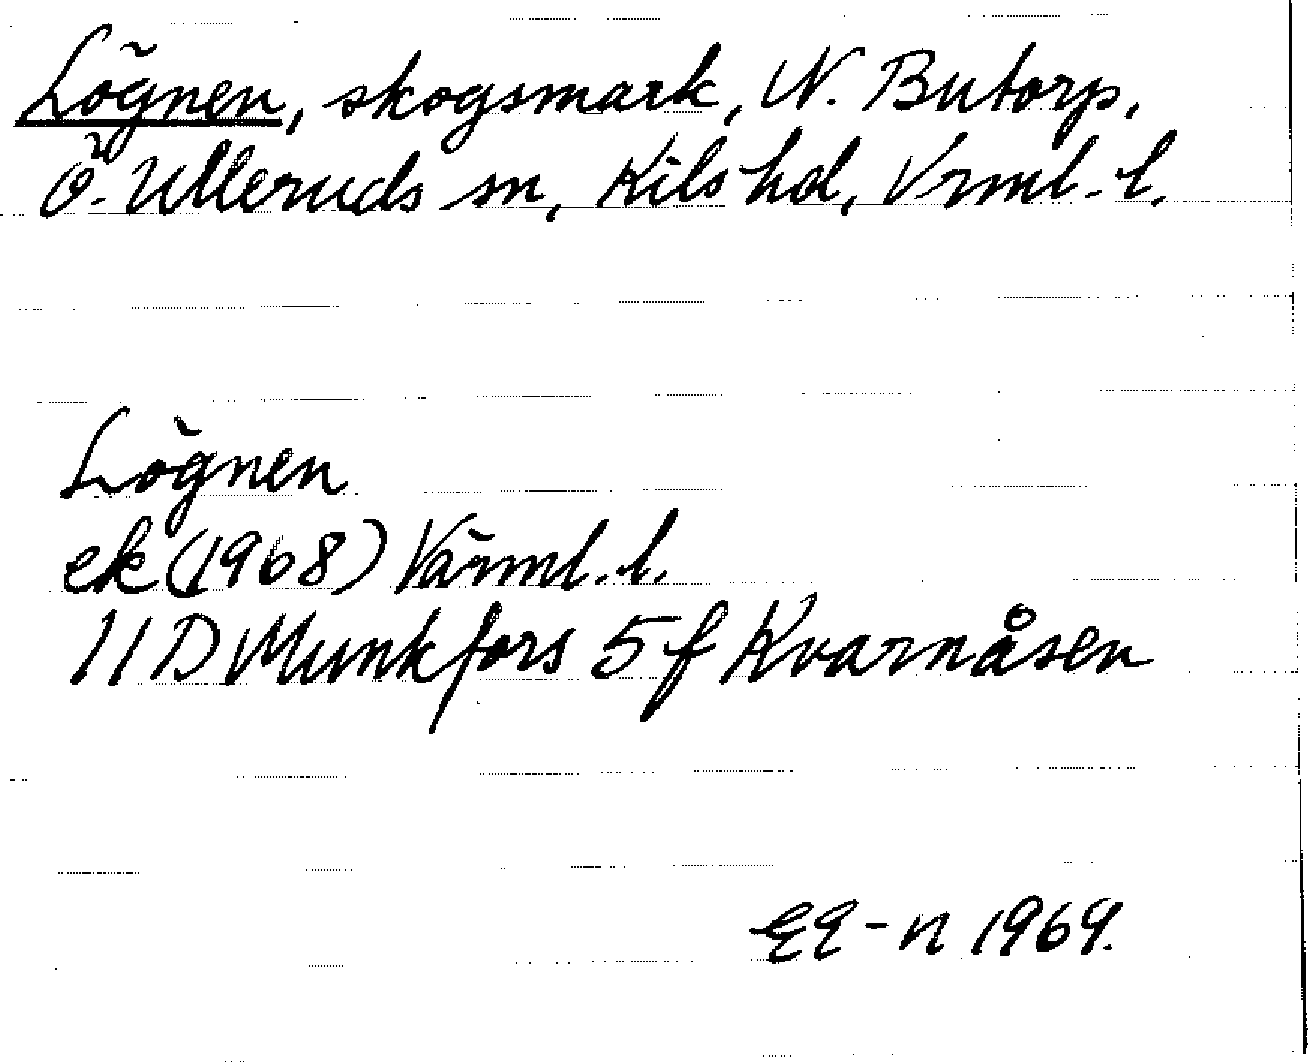 Lögnen, skogsmark, N. Butorp,
Ö. Ulleruds sn, Kils hd, Vrml. l.
Lögnen
ek (1968) Värml. l.
11D Munkfors 5 f Kvarnåsen
EQ-n 1969.